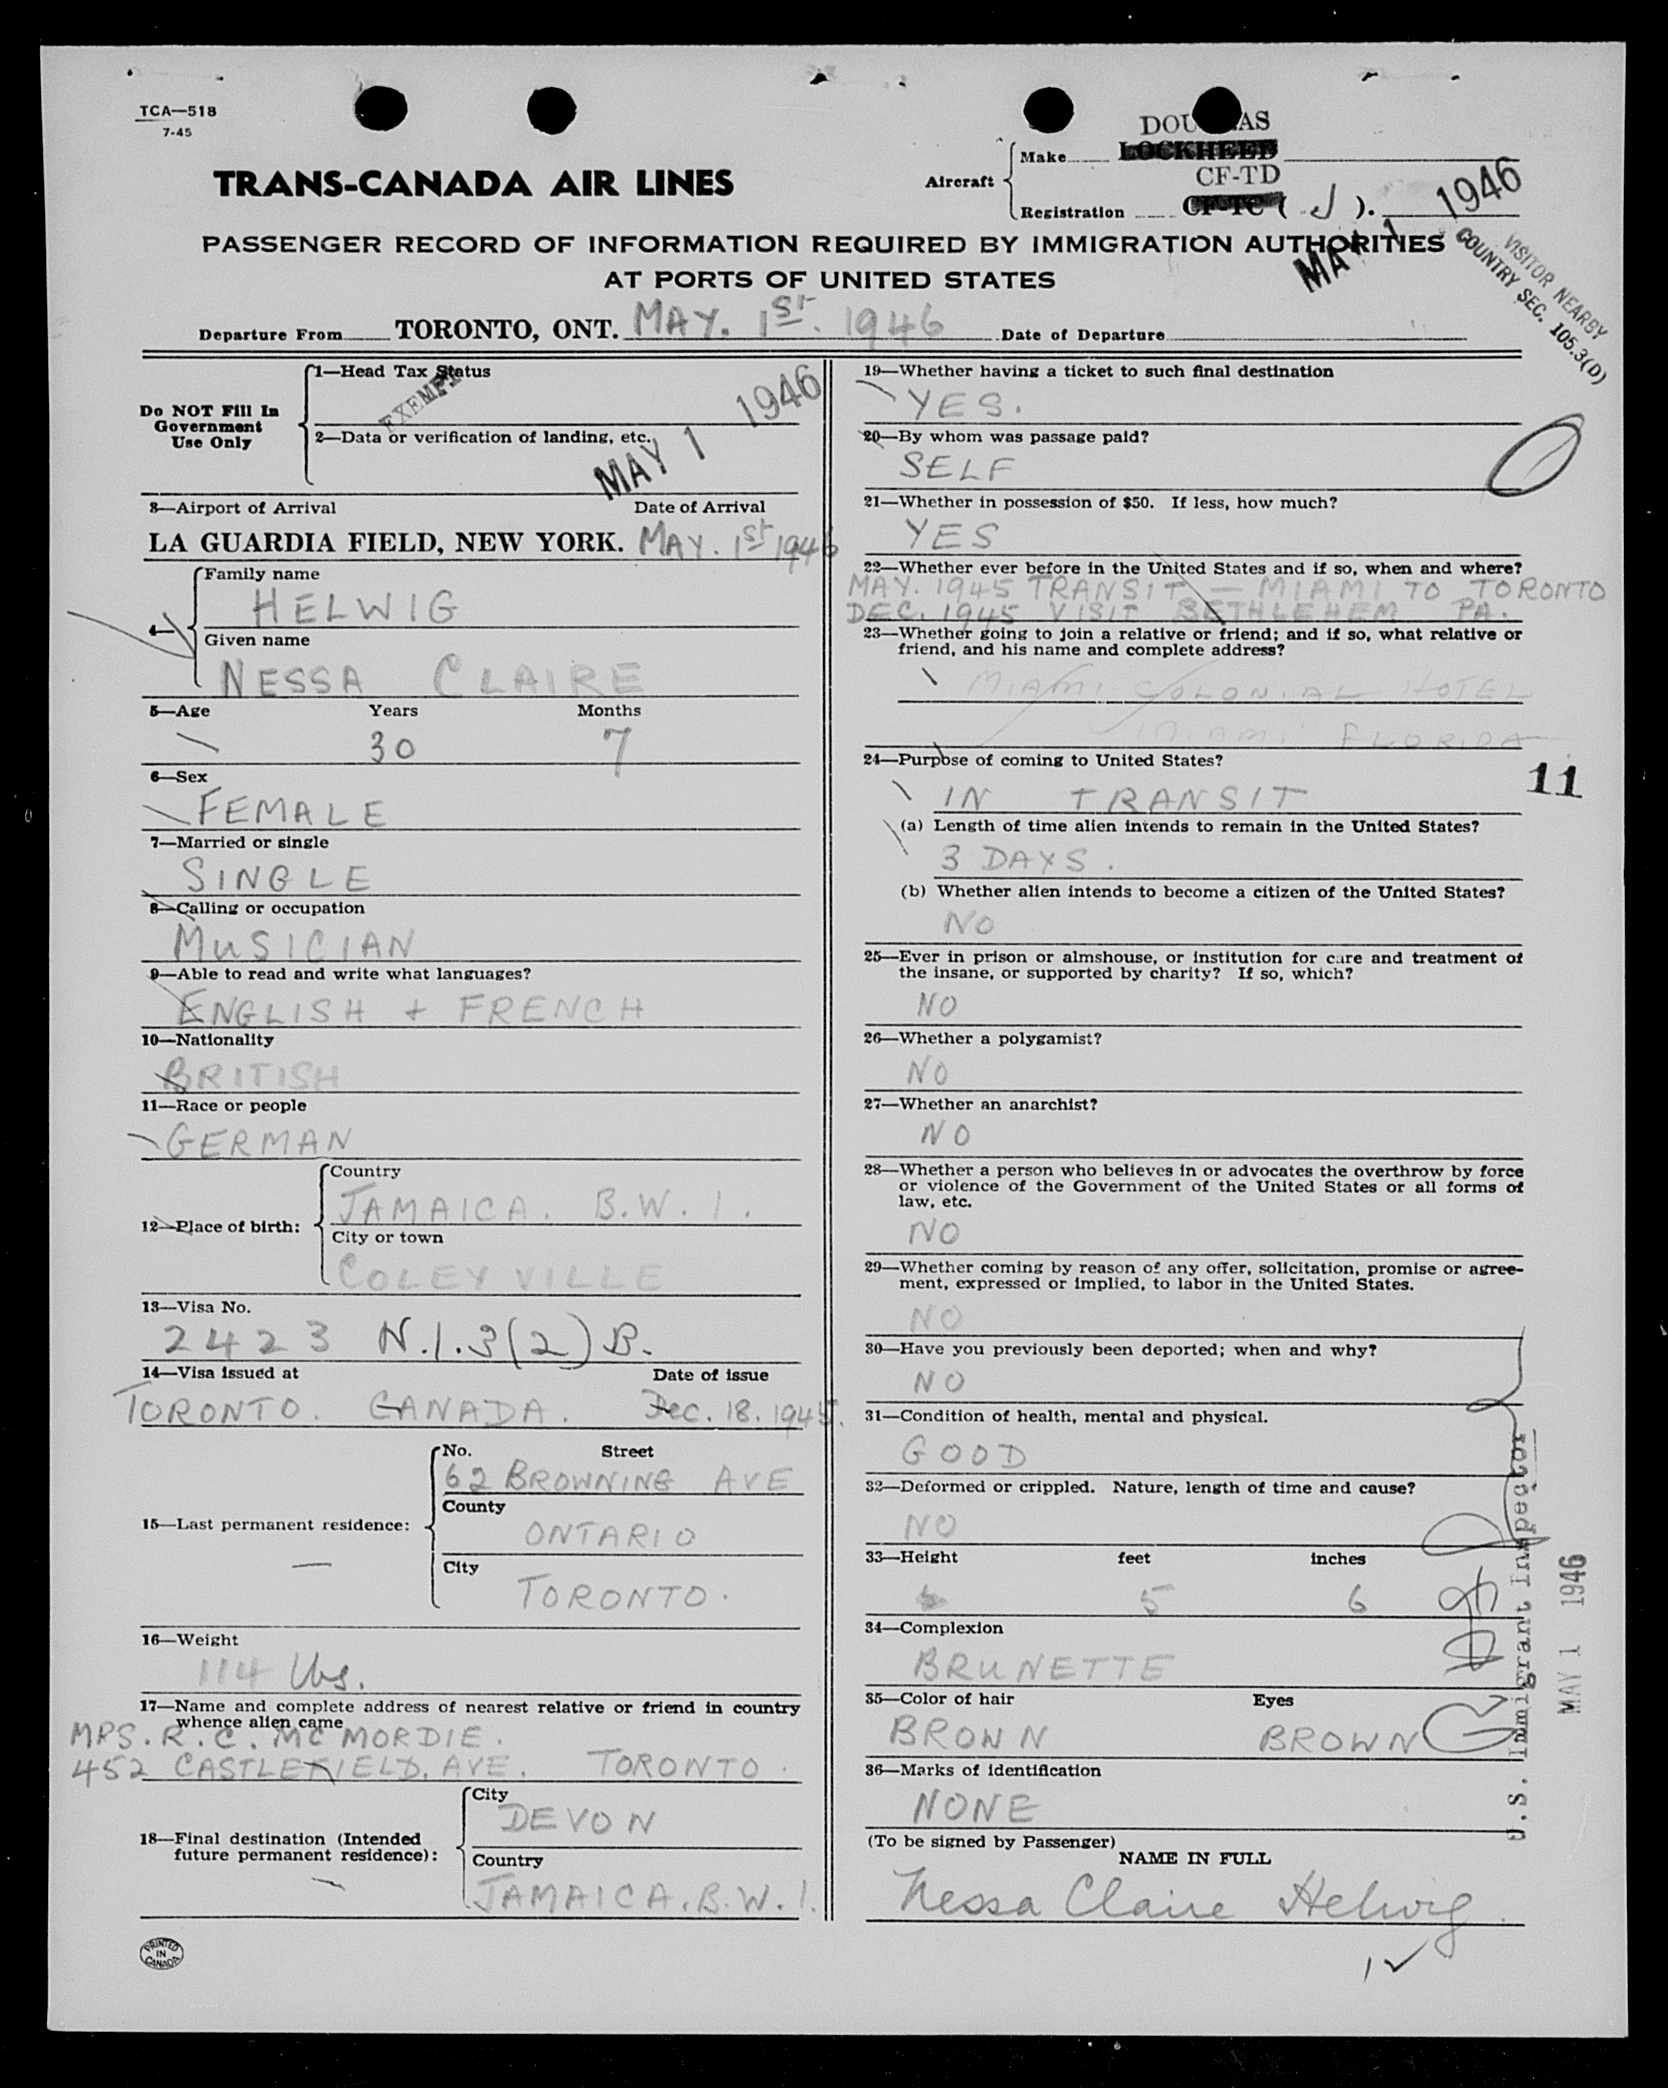 TCA—518
7-45
TRANS-CANADA AIR LINES
Aircraft
Make
DOU AS
LOCKHEED
CF-TD
Registration CF-TC ( J ).
MAY 1 1946
VISITOR NEARBY
COUNTRY SEC. 105.3(D)
PASSENGER RECORD OF INFORMATION REQUIRED BY IMMIGRATION AUTHORITIES
AT PORTS OF UNITED STATES
Departure From TORONTO, ONT. MAY. 1st. 1946 Date of Departure
Do NOT Fill In
Government
Use Only
1—Head Tax Status
EXEMPT
2—Data or verification of landing, etc.
MAY 1 1946
3—Airport of Arrival Date of Arrival
LA GUARDIA FIELD, NEW YORK. MAY. 1st 1946
4—
Family name
HELWIG
Given name
NESSA CLAIRE
5—Age Years Months
30 7
6—Sex
FEMALE
7—Married or single
SINGLE
8—Calling or occupation
MUSICIAN
9—Able to read and write what languages?
ENGLISH + FRENCH
10—Nationality
BRITISH
11—Race or people
GERMAN
12—Place of birth:
Country
JAMAICA. B.W.I.
City or town
COLEYVILLE
13—Visa No.
2423 N.I.3(2)B.
14—Visa issued at Date of issue
TORONTO. CANADA. Dec. 18. 1945.
15—Last permanent residence:
No. Street
62 BROWNING AVE
County
ONTARIO
City
TORONTO.
16—Weight
114 lbs.
17—Name and complete address of nearest relative or friend in country
whence alien came
MRS. R. C. MCMORDIE.
452 CASTLEFIELD. AVE. TORONTO.
18—Final destination (Intended
future permanent residence):
City
DEVON
Country
JAMAICA. B.W.I.
PRINTED
IN
CANADA
19—Whether having a ticket to such final destination
YES.
20—By whom was passage paid?
SELF
21—Whether in possession of $50. If less, how much?
YES
22—Whether ever before in the United States and if so, when and where?
MAY. 1945 TRANSIT — MIAMI TO TORONTO
DEC. 1945 VISIT BETHLEHEM PA.
23—Whether going to join a relative or friend; and if so, what relative or
friend, and his name and complete address?
MIAMI COLONIAL HOTEL
MIAMI FLORIDA
24—Purpose of coming to United States?
11
IN TRANSIT
(a) Length of time alien intends to remain in the United States?
3 DAYS.
(b) Whether alien intends to become a citizen of the United States?
NO
25—Ever in prison or almshouse, or institution for care and treatment of
the insane, or supported by charity? If so, which?
NO
26—Whether a polygamist?
NO
27—Whether an anarchist?
NO
28—Whether a person who believes in or advocates the overthrow by force
or violence of the Government of the United States or all forms of
law, etc.
NO
29—Whether coming by reason of any offer, solicitation, promise or agree-
ment, expressed or implied, to labor in the United States.
NO
30—Have you previously been deported; when and why?
NO
31—Condition of health, mental and physical.
GOOD
32—Deformed or crippled. Nature, length of time and cause?
NO
33—Height feet inches
5 6
34—Complexion
BRUNETTE
35—Color of hair Eyes
BROWN BROWN
36—Marks of identification
NONE
(To be signed by Passenger)
NAME IN FULL
Nessa Claire Helwig.
U.S. Immigrant Inspector
MAY 1 1946